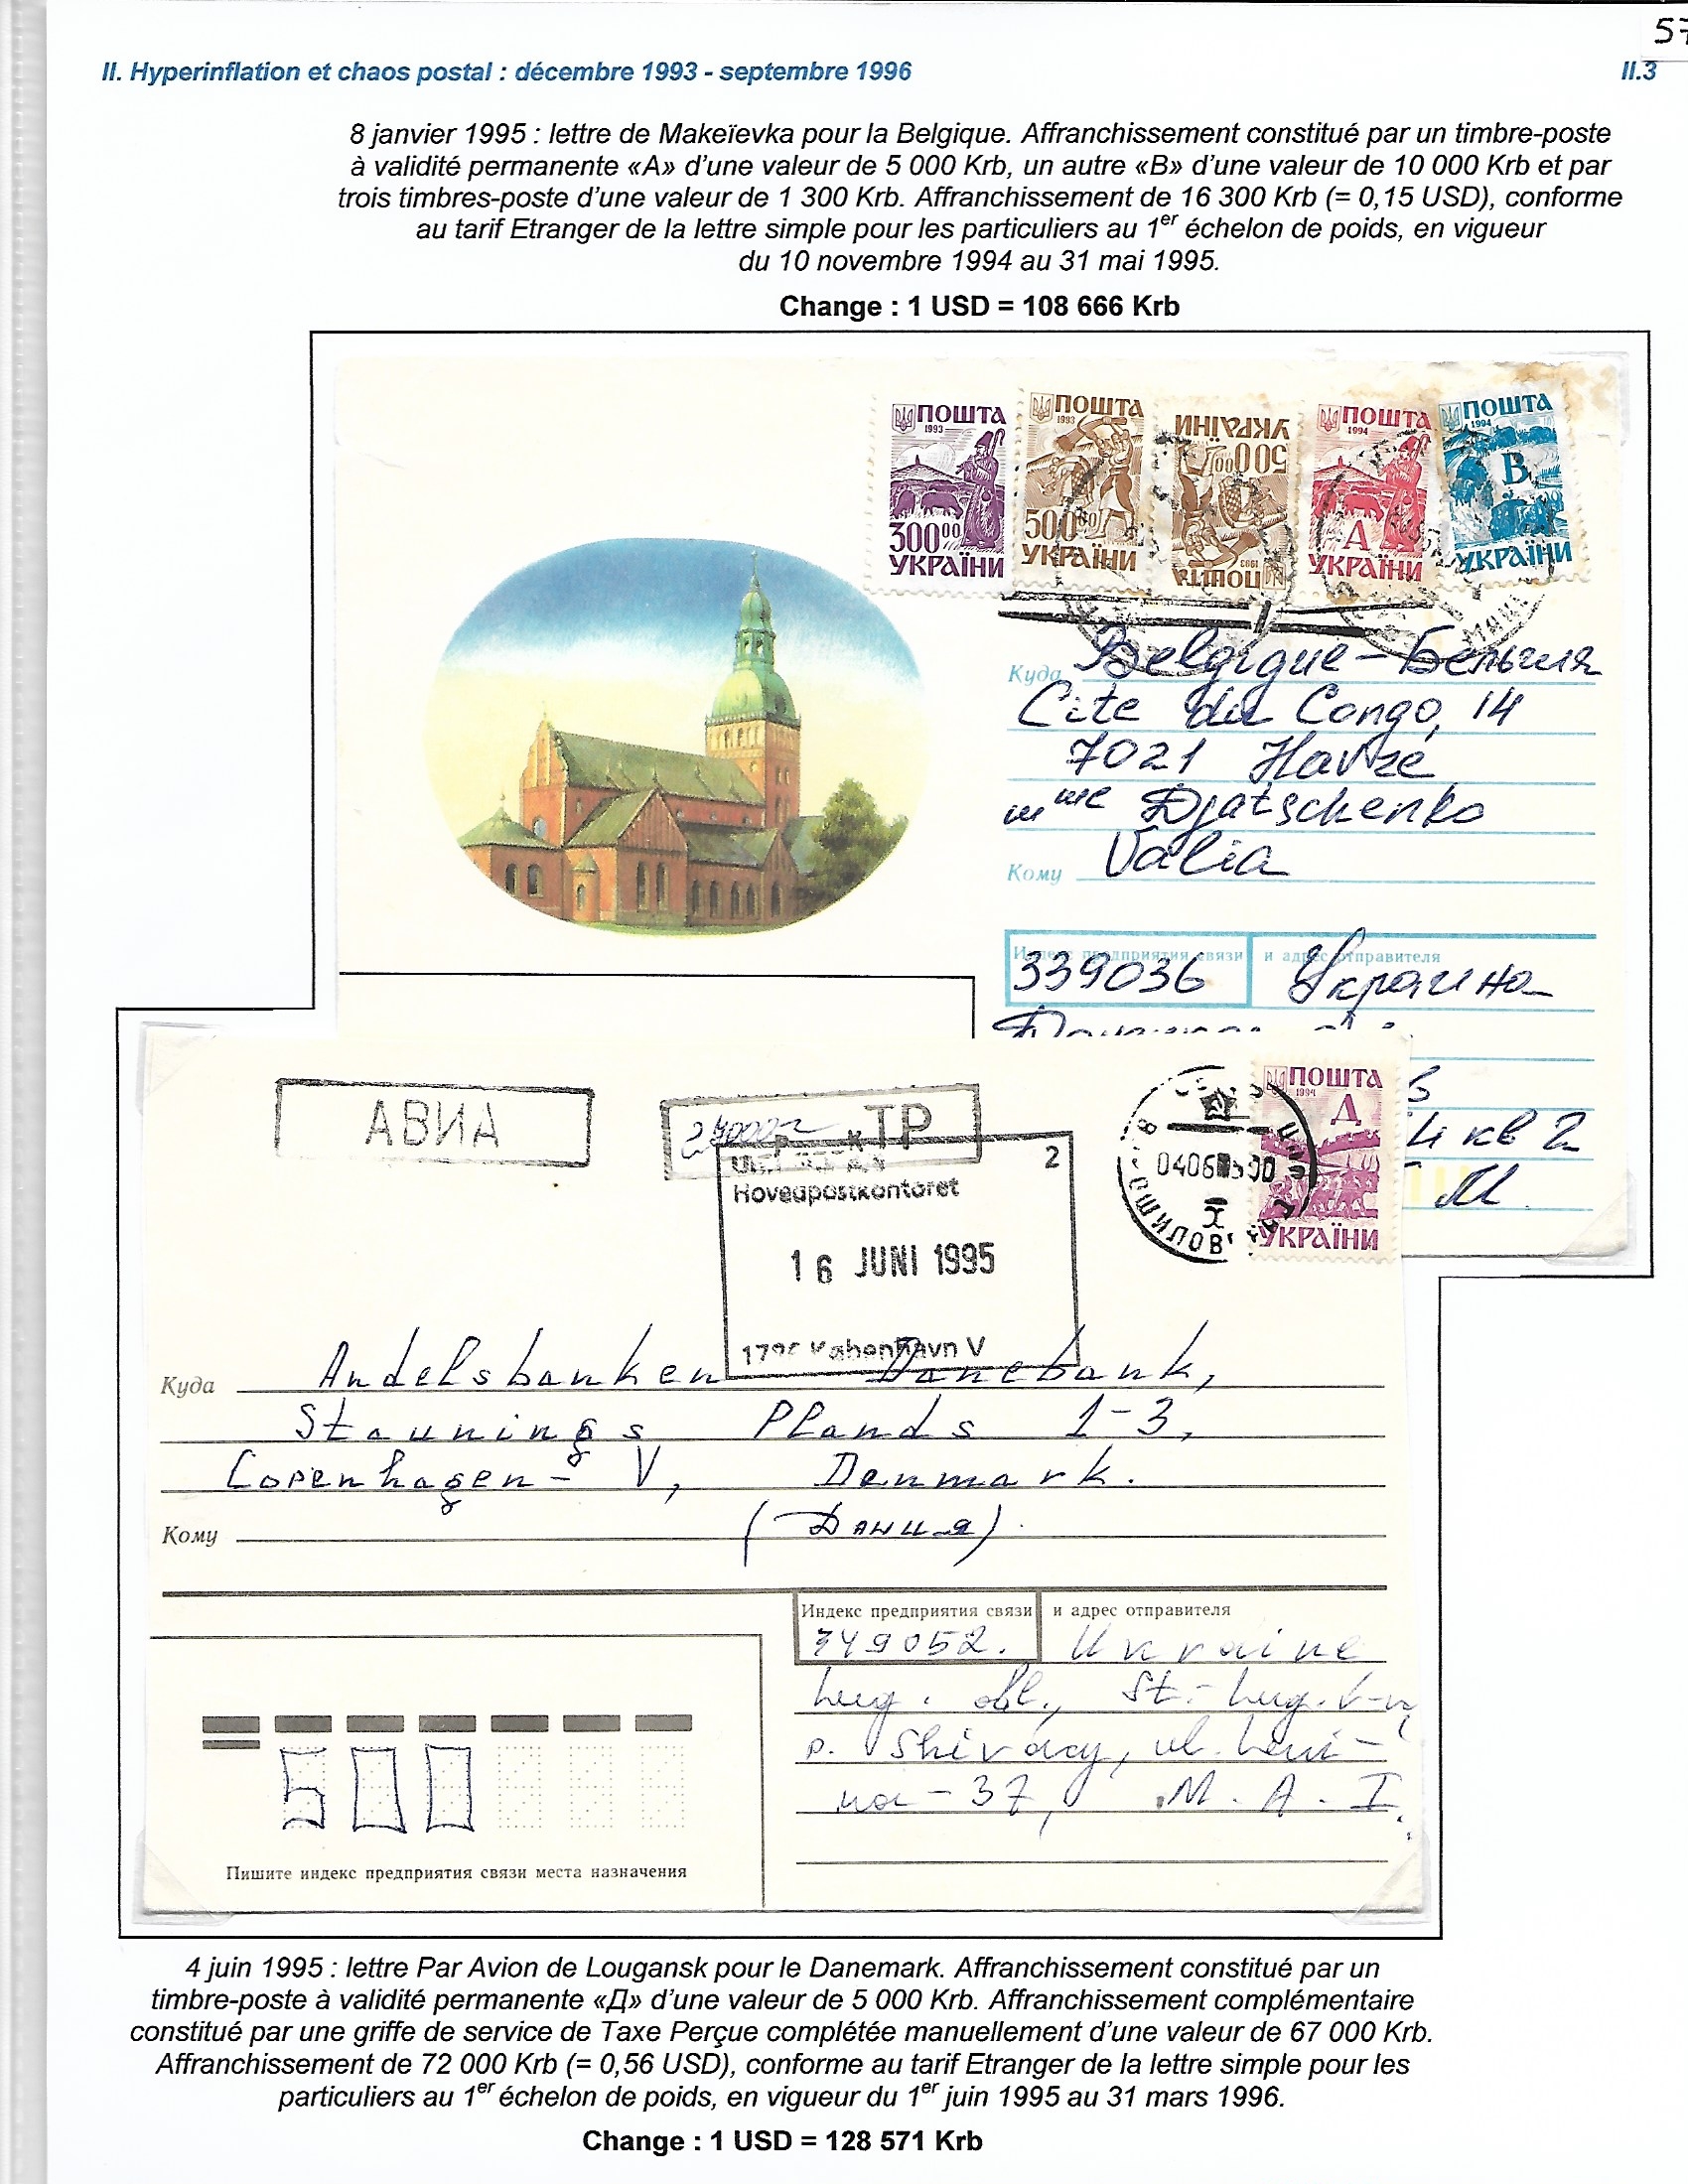 57
II. Hyperinflation et chaos postal : décembre 1993 - septembre 1996
II.3
8 janvier 1995 : lettre de Makeïevka pour la Belgique. Affranchissement constitué par un timbre-poste
à validité permanente «A» d’une valeur de 5 000 Krb, un autre «B» d’une valeur de 10 000 Krb et par
trois timbres-poste d’une valeur de 1 300 Krb. Affranchissement de 16 300 Krb (= 0,15 USD), conforme
au tarif Etranger de la lettre simple pour les particuliers au 1er échelon de poids, en vigueur
du 10 novembre 1994 au 31 mai 1995.
Change : 1 USD = 108 666 Krb
ПОШТА
1993
300 00
УКРАЇНИ
ПОШТА
1993
500 00
УКРАЇНИ
ПОШТА
1993
500 00
УКРАЇНИ
ПОШТА
1994
А
УКРАЇНИ
ПОШТА
1994
В
УКРАЇНИ
Куда Belgique – Бельгия
Cite du Congo, 14
7021 Havré
mme Djatschenko
Кому Valia
Индекс предприятия связи и адрес отправителя
339036 Украина
кв 2
АВИА
TP
2
Hovedpostkontoret
16 JUNI 1995
København V
ПОШТА
1994
Д
УКРАЇНИ
040695 00
Куда Andelsbanken Danebank,
Staunings Plands 1-3,
Copenhagen - V, Denmark.
Кому (Дания).
Индекс предприятия связи и адрес отправителя
349052. Ukraine
Lug. obl., St.-Lug. r-n,
p. Shirocy, ul. Leni-
na - 37, M. A. I.
500
Пишите индекс предприятия связи места назначения
4 juin 1995 : lettre Par Avion de Lougansk pour le Danemark. Affranchissement constitué par un
timbre-poste à validité permanente «Д» d’une valeur de 5 000 Krb. Affranchissement complémentaire
constitué par une griffe de service de Taxe Perçue complétée manuellement d’une valeur de 67 000 Krb.
Affranchissement de 72 000 Krb (= 0,56 USD), conforme au tarif Etranger de la lettre simple pour les
particuliers au 1er échelon de poids, en vigueur du 1er juin 1995 au 31 mars 1996.
Change : 1 USD = 128 571 Krb